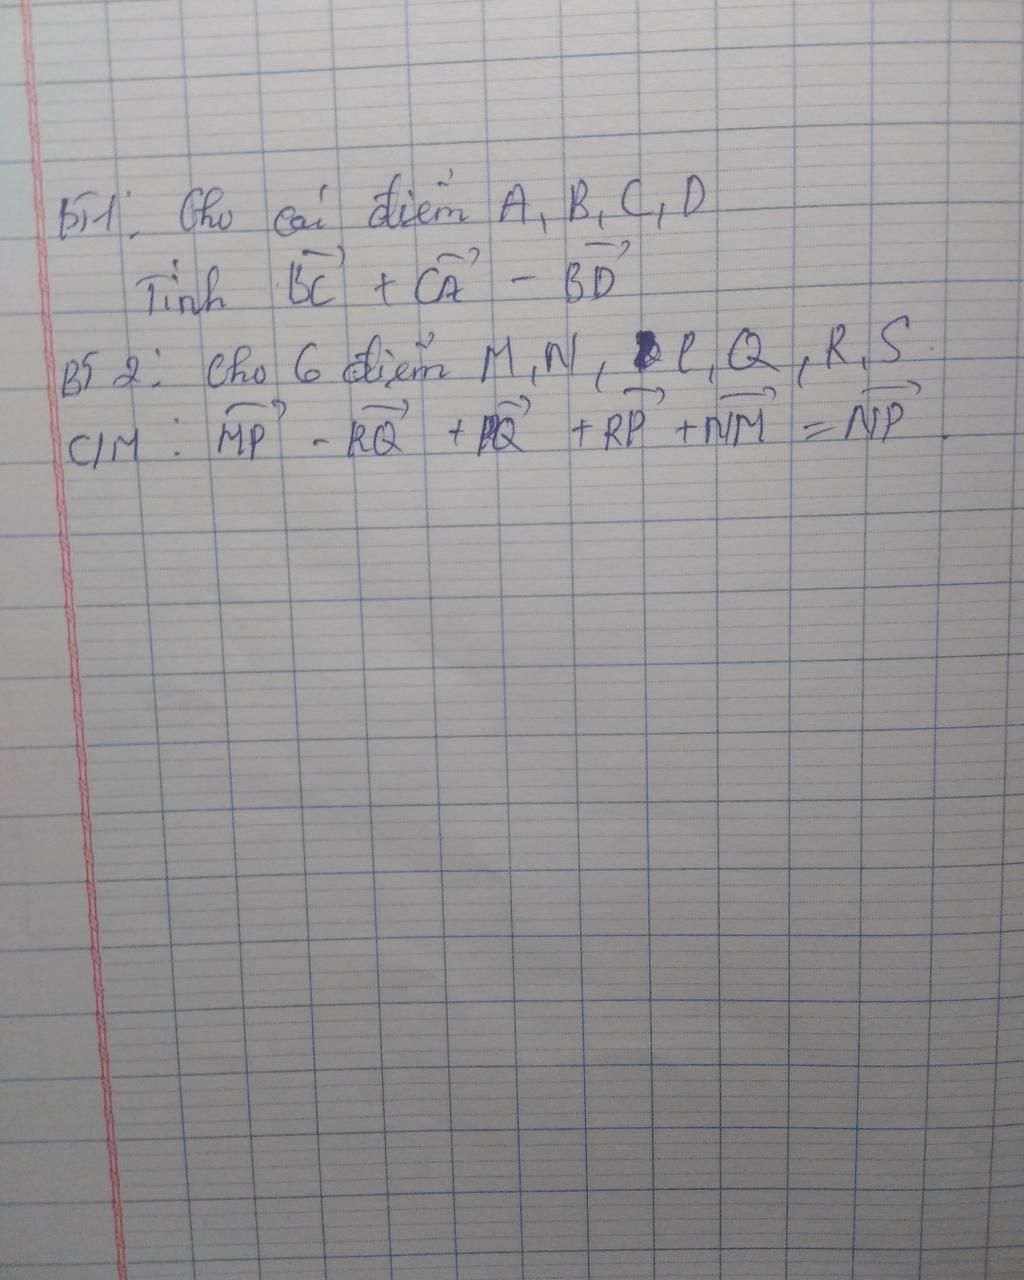 BT1: Cho các điểm A, B, C, D
Tính BC + CA - BD
BT 2: Cho 6 điểm M, N, P, Q, R, S.
C/M: MP - RQ + PQ + RP + NM = NP.